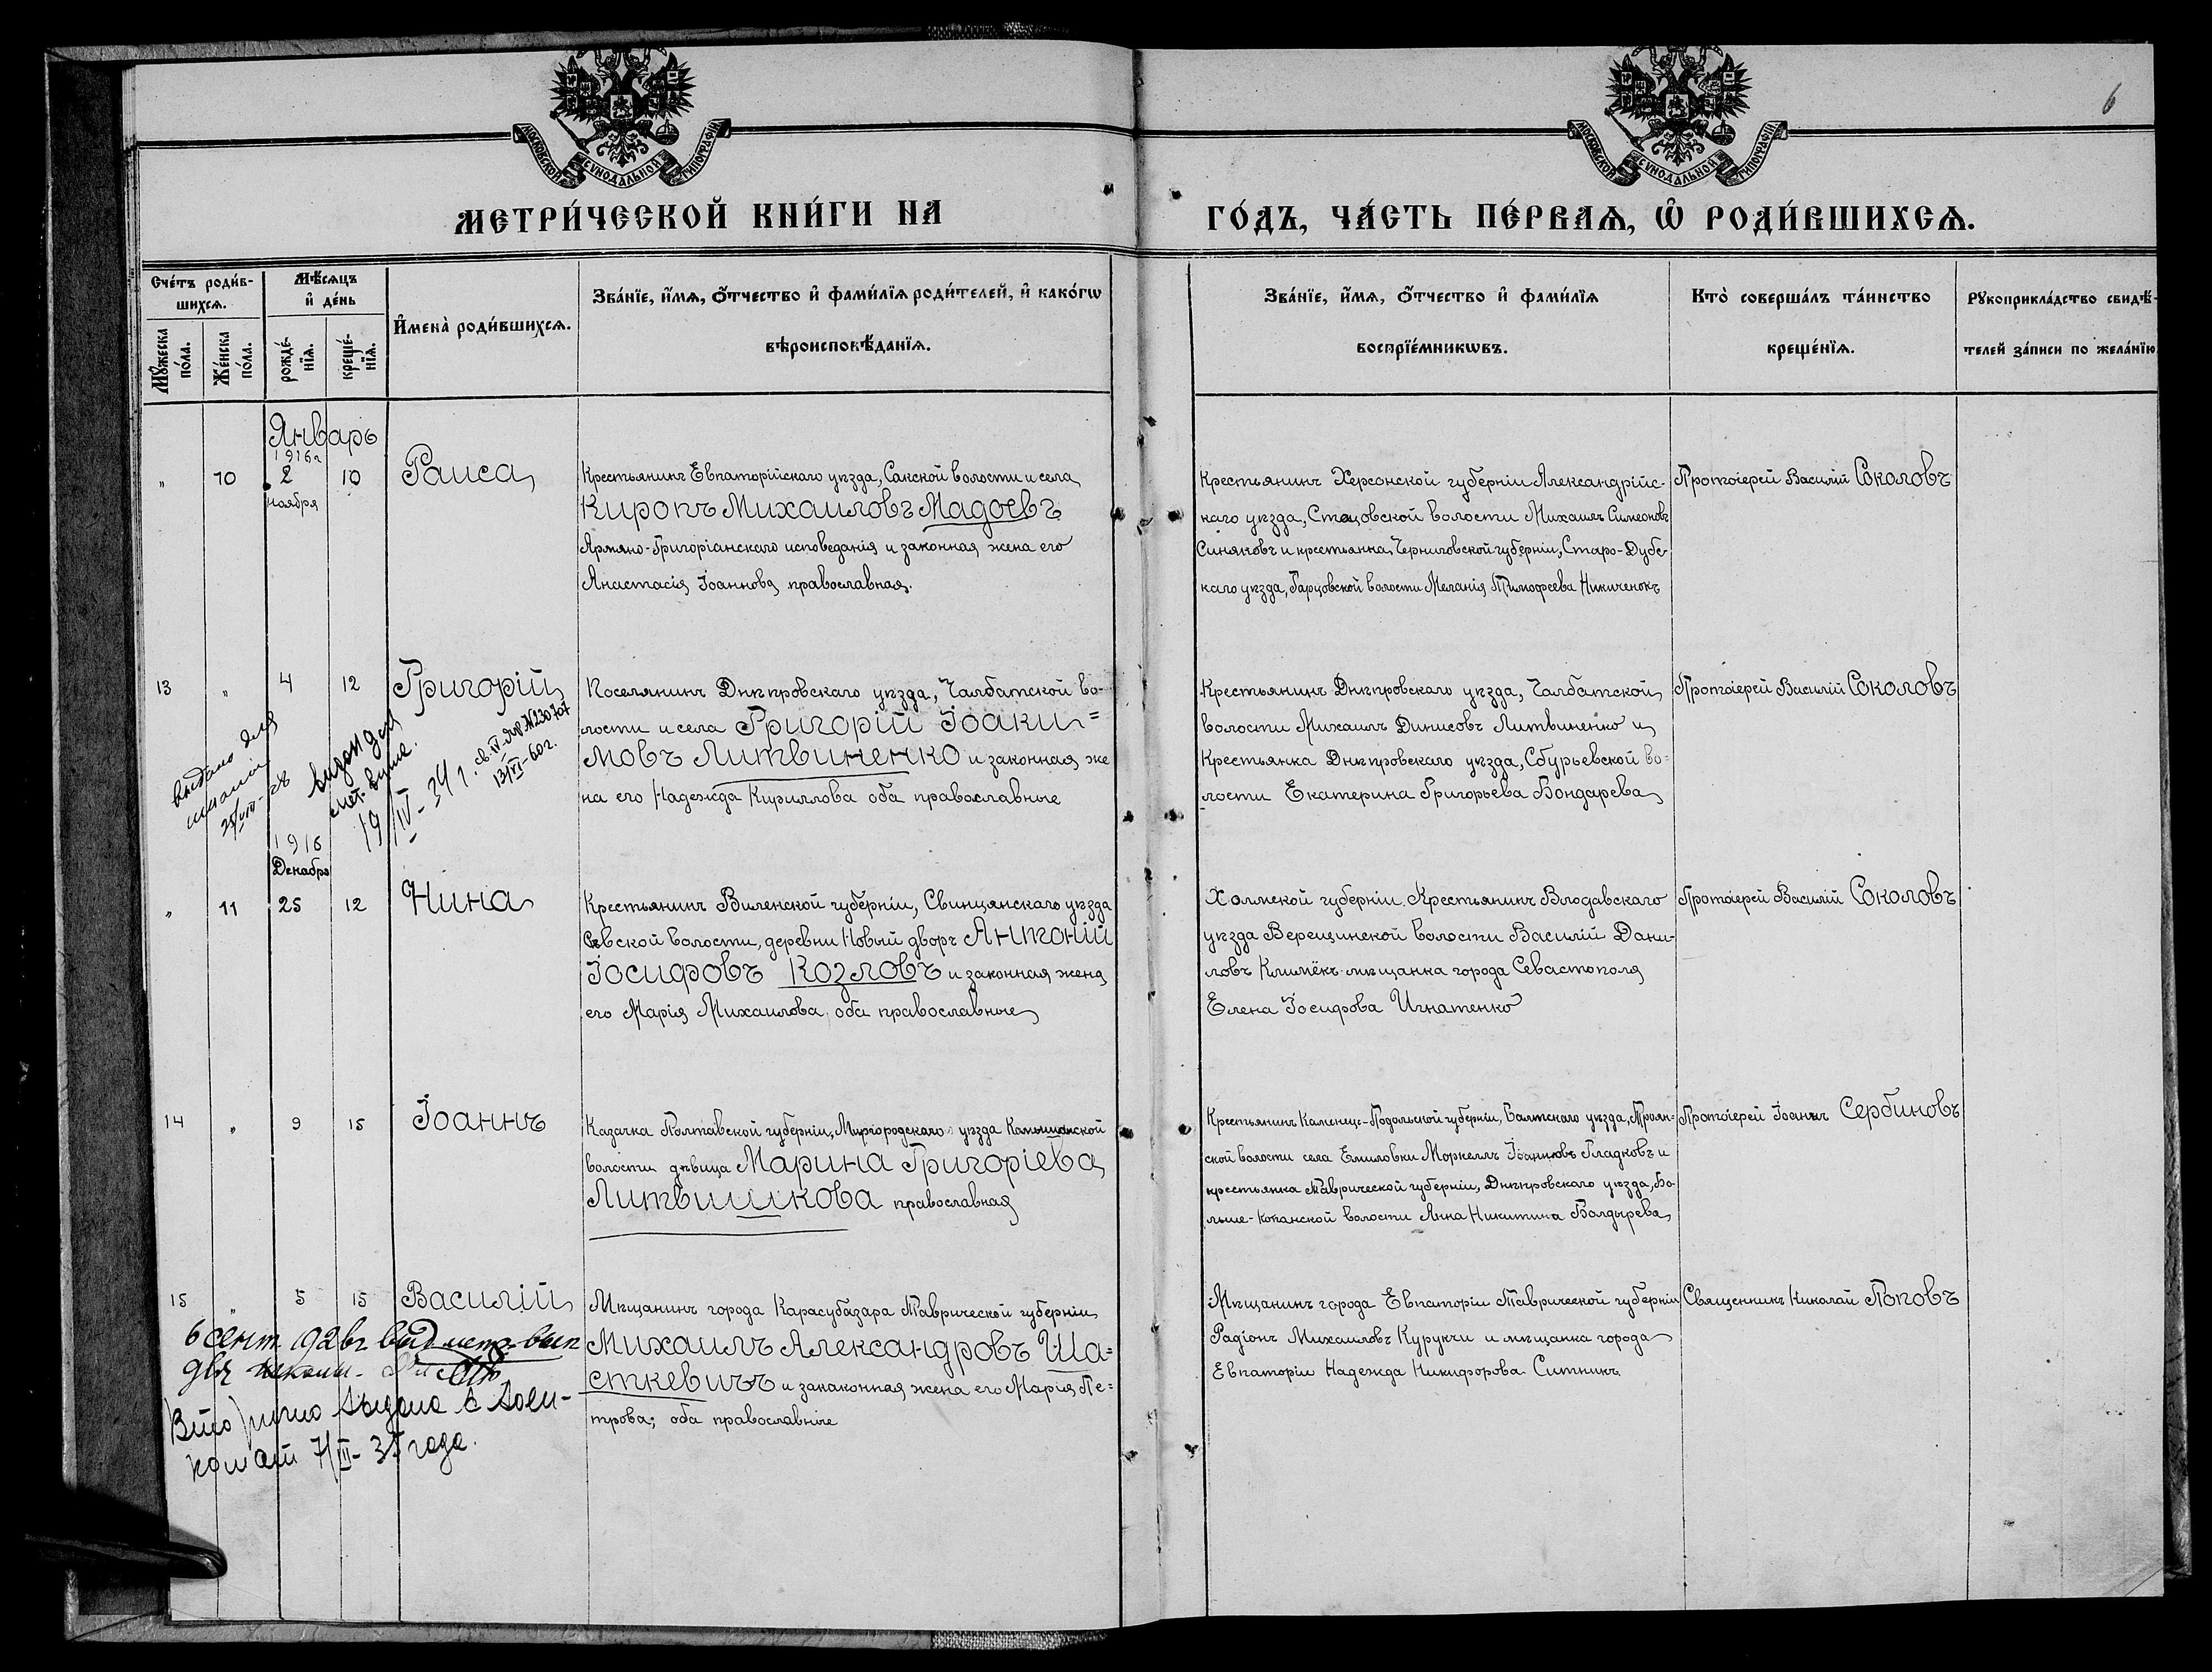 6
МОСКОВСКОЙ СѴНОДАЛЬНОЙ ТИПОГРАФІИ
МОСКОВСКОЙ СѴНОДАЛЬНОЙ ТИПОГРАФІИ
МЕТРИ́ЧЕСКОЙ КНИ́ГИ НА
ГО́ДЪ, ЧА́СТЬ ПЕ́РВАѦ, Ѽ РОДИ́ВШИХСѦ.
Сче́тъ роди́в-
шихсѧ.
Мꙋ́жеска по́ла.
Же́нска по́ла.
Мѣ́сѧцъ
и҆ де́нь
рожде́-
нїѧ.
креще́-
нїѧ.
И҆мена̀ роди́вшихсѧ.
Зва́нїе, и҆́мѧ, ѻ҆́тчество и҆ фами́лїѧ роди́телей, и҆ како́гѡ
вѣроисповѣ́данїѧ.
Зва́нїе, и҆́мѧ, ѻ҆́тчество и҆ фами́лїѧ
воспрїе́мникѡвъ.
Кто̀ соверша́лъ та́инство
креще́нїѧ.
Рꙋкоприкла́дство свидѣ́-
телей за́писи по жела́нїю
Январь
1916 г
„ 10 2 10 Раиса
ноября
Крестьянинъ Евпаторійскаго уѣзда, Сакской волости и села
Киропъ Михаиловъ Мадоевъ
Армяно-Григоріанскаго исповеданія и законная жена его
Анастасія Іоаннова православная.
Крестьянинъ Херсонской губерніи Александрійс-
каго уѣзда, Стецовской волости Михаилъ Симеоновъ
Синяковъ и крестьянка Черниговской губерніи, Старо-Дубс-
каго уѣзда, Гарцовской волости Меланія Тимофеева Никиченокъ
Протоіерей Василій Соколовъ
13 „ 4 12 Григорій
Поселянинъ Днѣпровскаго уѣзда, Чалбатской во-
лости и села Григорій Іоаки=
мовъ Литвиненко и законная же
на его Надежда Кириллова оба православные
Крестьянинъ Днѣпровскаго уѣзда, Чалбатской
волости Михаилъ Динисовъ Литвиненко и
Крестьянка Днѣпровскаго уѣзда, Сбурьевской во=
лости Екатерина Григорьева Бондарева
Протоіерей Василій Соколовъ
выдано для
школы
25/VIII-28
выдан для
19/IV-34 г.
св. IV-АП № 230707
13/VI-60 г.
1916
Декабря
„ 11 25 12 Нина
Крестьянинъ Виленской губерніи, Свинцянскаго уѣзда
волости, деревни Новый дворъ Антоній
Іосифовъ Козловъ и законная жена
его Марія Михаилова оба православные
Холмской губерніи Крестьянинъ Влодавскаго
уѣзда Верещинской волости Василій Дани-
ловъ Климёкъ мѣщанка города Севастополя
Елена Іосифова Игнатенко
Протоіерей Василій Соколовъ
14 „ 9 15 Іоаннъ
Казачка Полтавской губерніи, Миргородскаго уѣзда Камышанской
волости дѣвица Марина Григоріева
Литвишкова православная
Крестьянинъ Каменце-Подольской губерніи, Балтскаго уѣзда, Троян=
ской волости села Емиловки Моркеллъ Іоанновъ Гладковъ и
крестьянка Таврической губерніи, Днѣпровскаго уѣзда, Бо-
льше-Копанской волости Анна Никитина Болдырева
Протоіерей Іоаннъ Сербиновъ
15 „ 5 15 Василій
Мѣщанинъ города Карасубазара Таврической губерніи
Михаилъ Александровъ Ша=
сткевичъ и занаконная жена его Марія Пе=
трова; оба православные
Мѣщанинъ города Евпаторіи Таврической губерніи
Радіонъ Михаиловъ Курукчи и мѣщанка города
Евпаторіи Надежда Никифорова Ситникъ
Священникъ Николай Поповъ
6 сент. 192 выд метр. вып
для школы.
Вторично выдана в Воен-
комат 7/III-35 года.